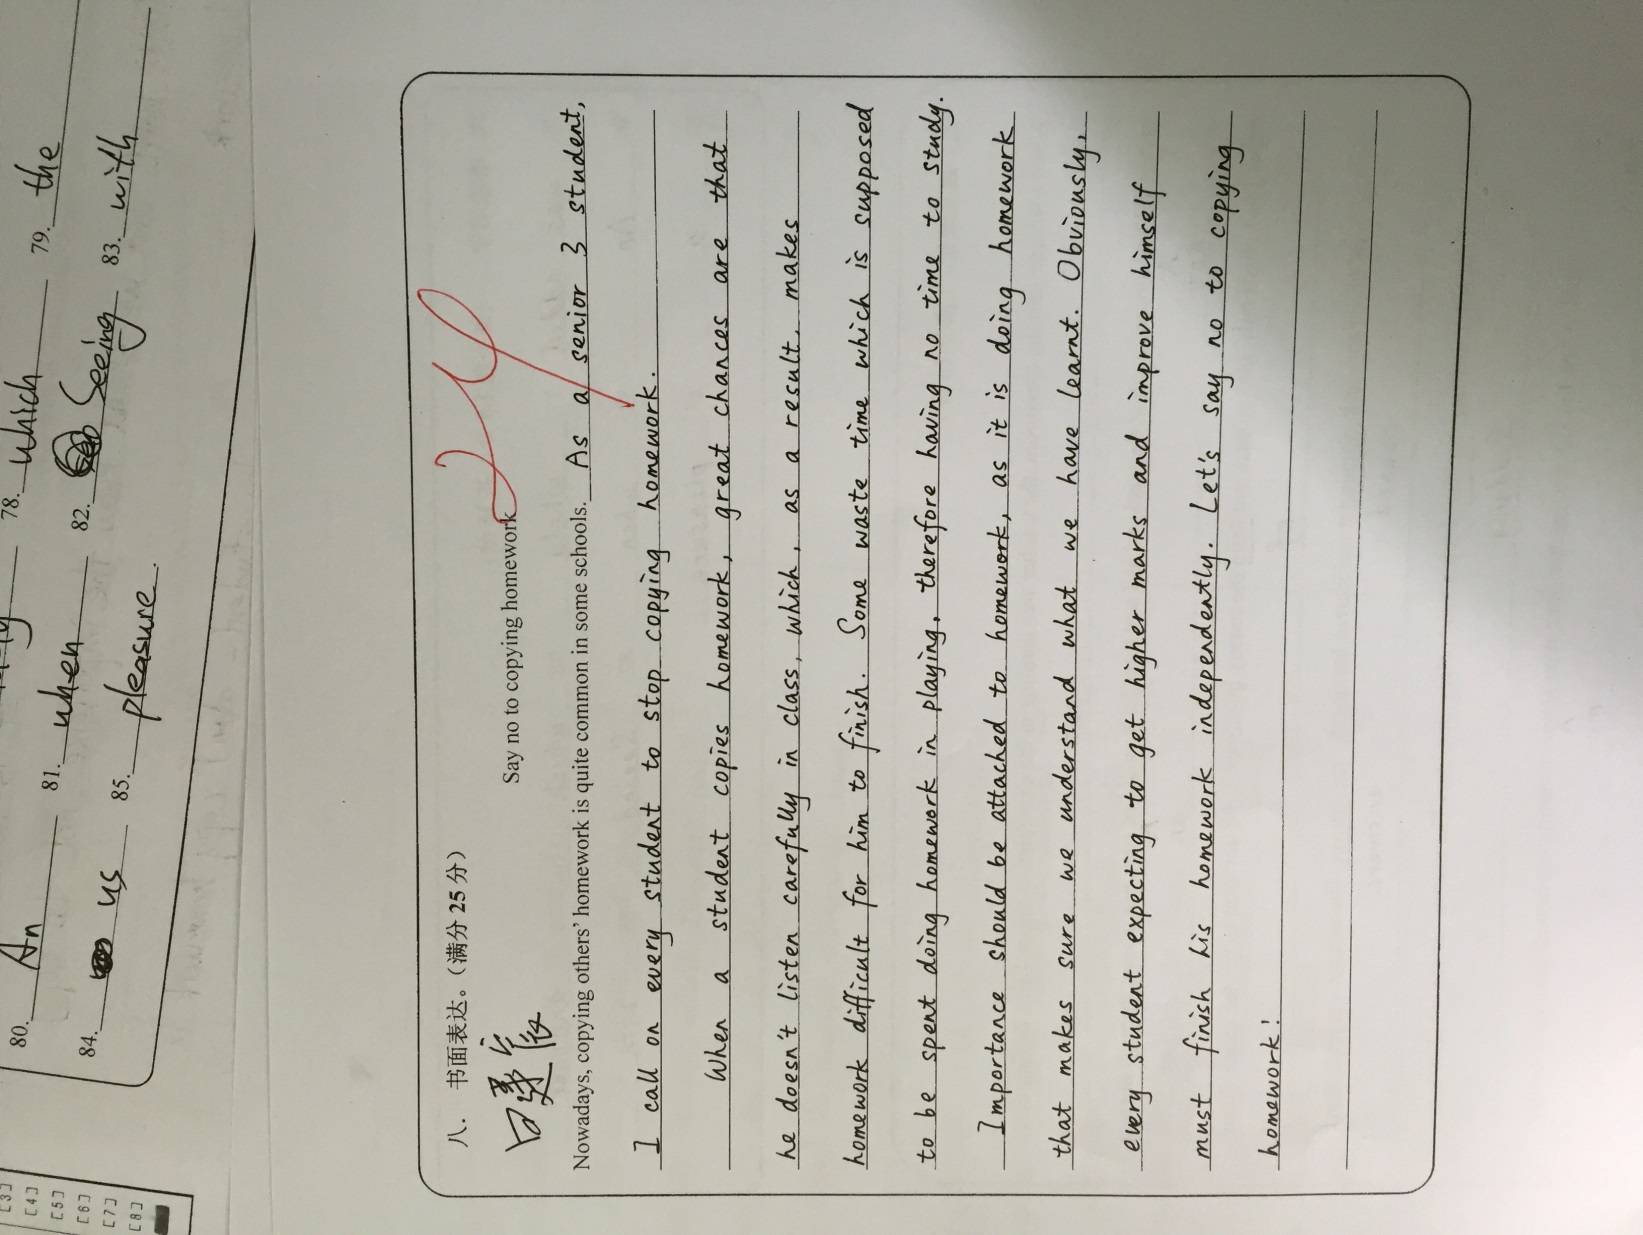 78. which 79. the
80. An 81. when 82. Seeing 83. with
84. us 85. pleasure
[3]
[4]
[5]
[6]
[7]
[8]
八． 书面表达。（满分 25 分）
24
Say no to copying homework
Nowadays, copying others' homework is quite common in some schools. As a senior 3 student,
I call on every student to stop copying homework.
When a student copies homework, great chances are that
he doesn't listen carefully in class, which, as a result, makes
homework difficult for him to finish. Some waste time which is supposed
to be spent doing homework in playing, therefore having no time to study.
Importance should be attached to homework, as it is doing homework
that makes sure we understand what we have learnt. Obviously,
every student expecting to get higher marks and improve himself
must finish his homework independently. Let's say no to copying
homework!